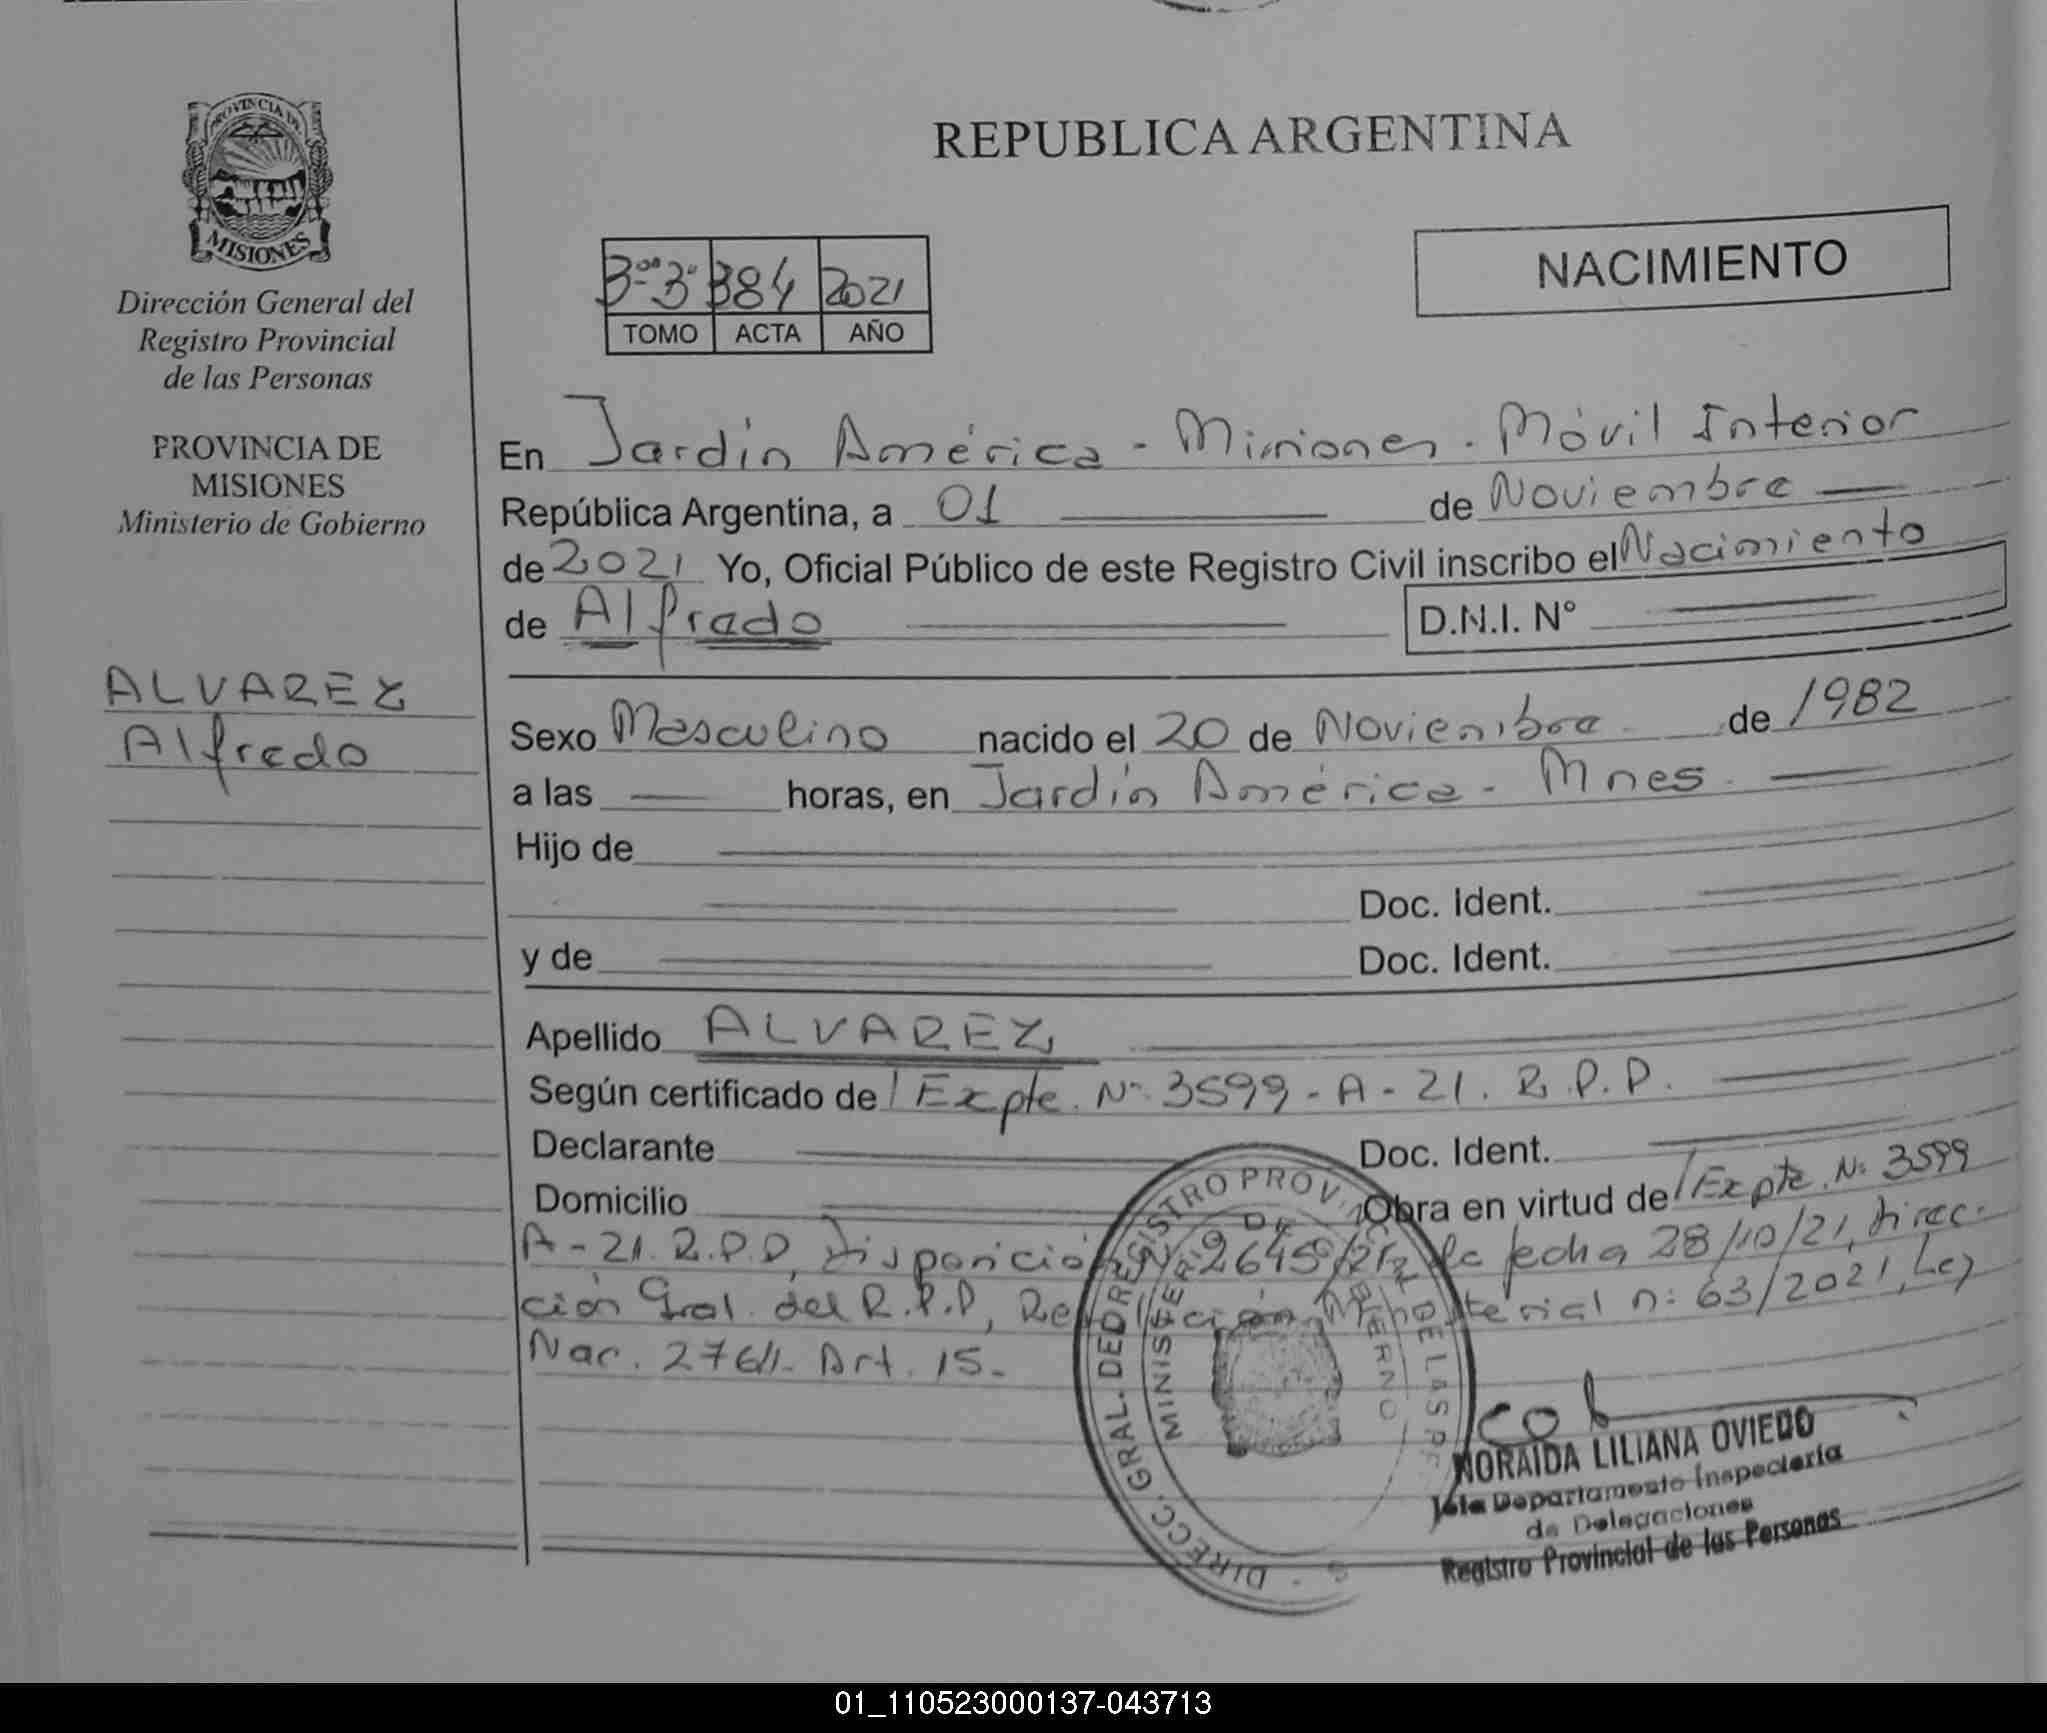 PROVINCIA DE
MISIONES
Dirección General del
Registro Provincial
de las Personas
PROVINCIA DE
MISIONES
Ministerio de Gobierno
ALVAREZ
Alfredo
REPUBLICA ARGENTINA
3º 3º 384 2021
TOMO ACTA AÑO
NACIMIENTO
En Jardín América - Misiones - Móvil Interior
República Argentina, a 01 de Noviembre
de 2021 Yo, Oficial Público de este Registro Civil inscribo el Nacimiento
de Alfredo D.N.I. Nº
Sexo Masculino nacido el 20 de Noviembre de 1982
a las horas, en Jardín América - Mnes
Hijo de
Doc. Ident.
y de Doc. Ident.
Apellido ALVAREZ
Según certificado de Expte. Nº 3599 - A - 21. R.P.P.
Declarante Doc. Ident.
Domicilio Obra en virtud de Expte. Nº 3599
A - 21. R.P.P, Disposición Nº 2645/21 de fecha 28/10/21, Direc-
ción Gral. del R.P.P, Resolución Ministerial nº 63/2021, Ley
Nac. 27611- Art. 15-
DIRECC. GRAL. DEL REGISTRO PROVINCIAL DE LAS PERS
MINISTERIO DE GOBIERNO
NORAIDA LILIANA OVIEDO
Jefa Departamento Inspectoría
de Delegaciones
Registro Provincial de las Personas
01_110523000137-043713